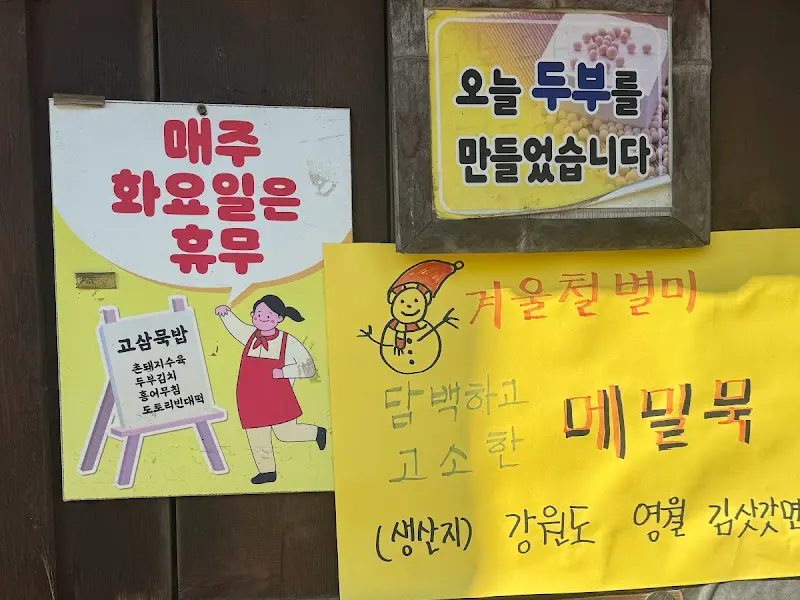 매주
화요일은
휴무
고삼묵밥
촌돼지수육
두부김치
홍어무침
도토리빈대떡
오늘 두부를
만들었습니다
겨울철 별미
담백하고
고소한
메밀묵
(생산지) 강원도 영월 김삿갓면